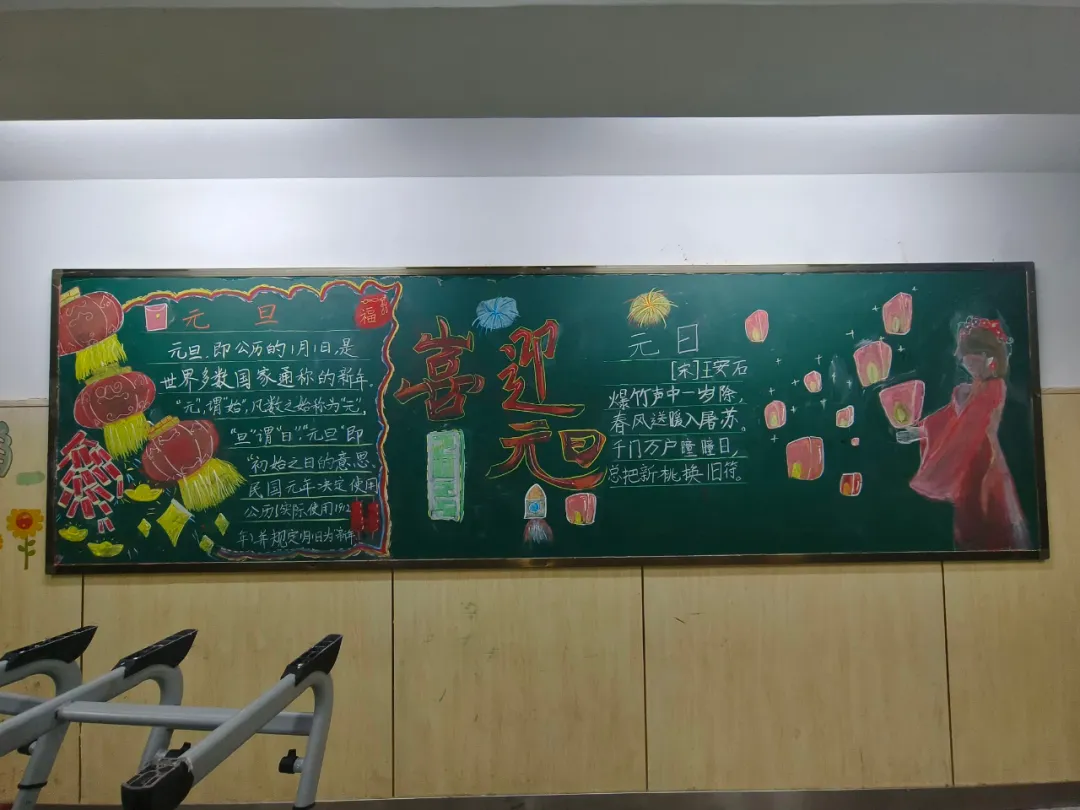 元旦
元旦,即公历的1月1日,是
世界多数国家通称的新年。
"元",谓"始",凡数之始称为"元",
"旦"谓"日";"元旦"即
"初始之日的意思、
民国元年决定使用
公历(实际使用1912
年),并规定1月1日为新年
福
喜迎
元旦
元日
[宋]王安石
爆竹声中一岁除,
春风送暖入屠苏。
千门万户曈曈日,
总把新桃换旧符。